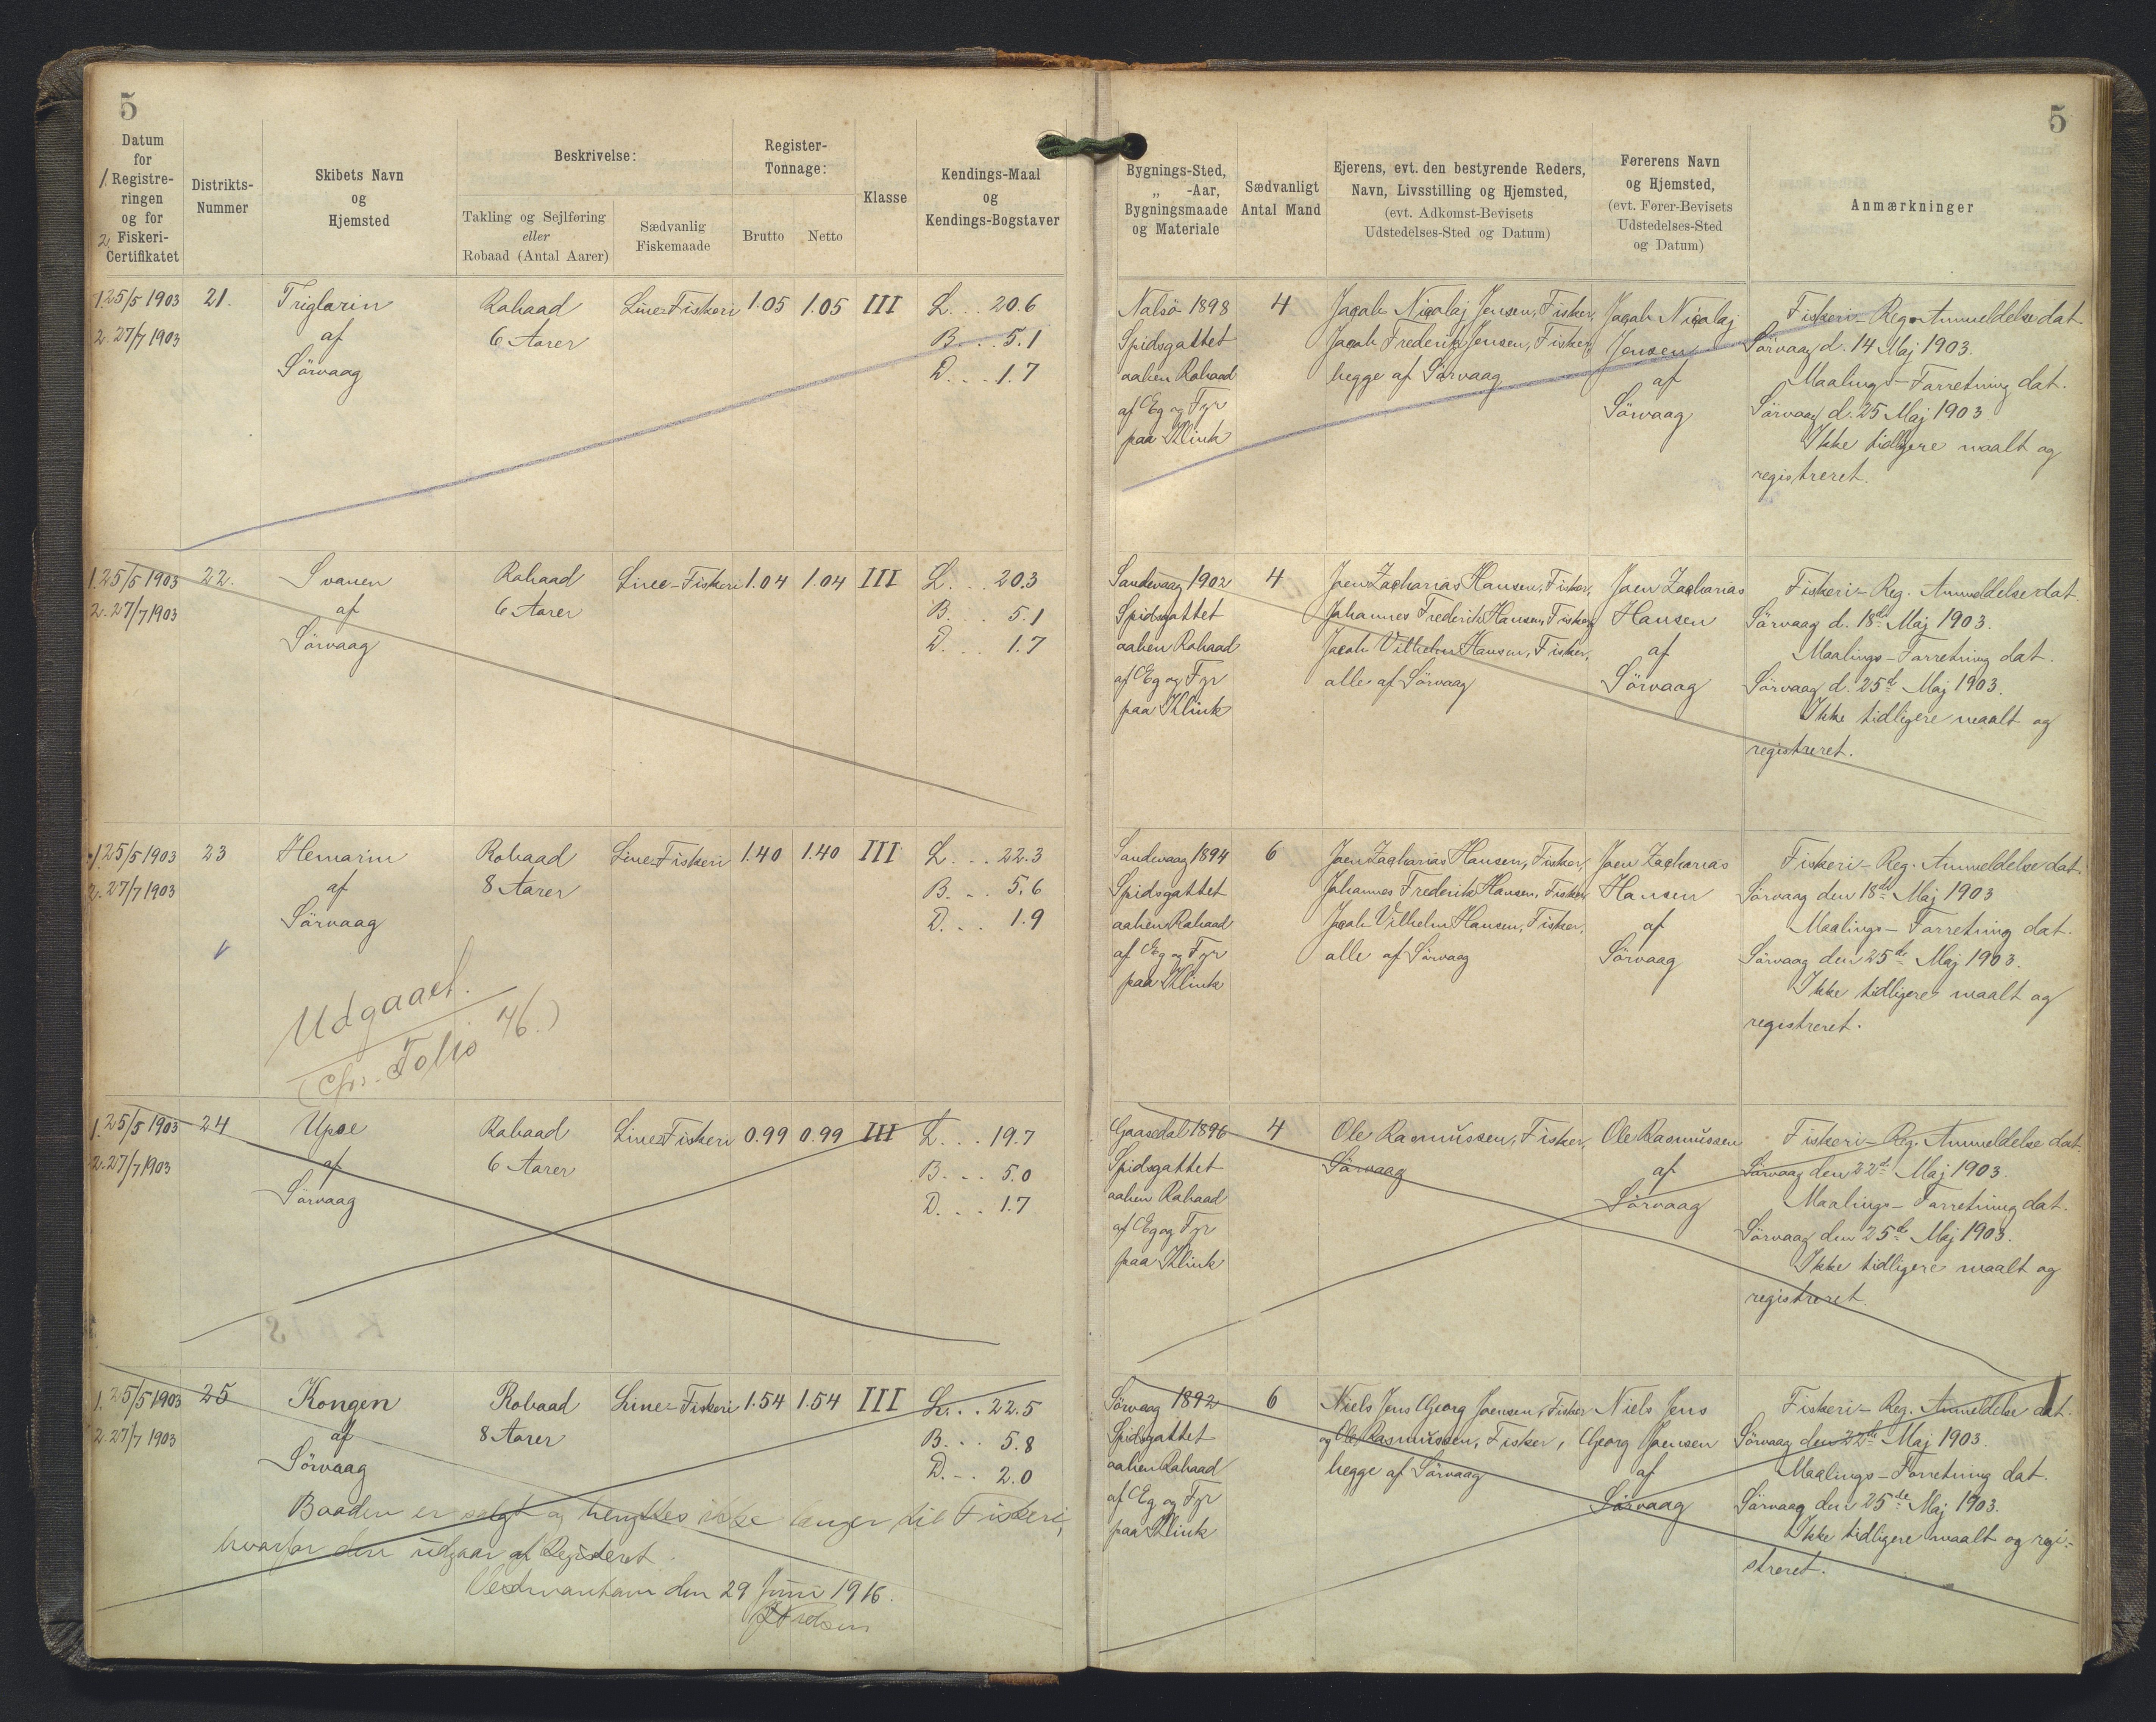 5
5
Datum
for
1. Registre-
ringen
og for
2. Fiskeri-
Certifikatet
Distrikts-
Nummer
Skibets Navn
og
Hjemsted
Beskrivelse:
Takling og Sejlføring
eller
Robaad (Antal Aarer)
Sædvanlig
Fiskemaade
Register-
Tonnage:
Brutto
Netto
Klasse
Kendings-Maal
og
Kendings-Bogstaver
Bygnings-Sted,
„ -Aar,
Bygningsmaade
og Materiale
Sædvanligt
Antal Mand
Ejerens, evt. den bestyrende Reders,
Navn, Livsstilling og Hjemsted,
(evt. Adkomst-Bevisets
Udstedelses-Sted og Datum)
Førerens Navn
og Hjemsted,
(evt. Fører-Bevisets
Udstedelses-Sted
og Datum)
Anmærkninger
1. 25/5 1903
2. 27/7 1903
21.
Triglarin
af
Sörvaag
Robaad
6 Aarer
Line-Fiskeri
1.05
1.05
III
L. . . 20.6
B. . . 5.1
D. . . 1.7
Nalsö 1898
Spidsgattet
aaben Robaad
af Eg og Fyr
paa Klink
4
Jacob Nicolaj Jensen, Fisker,
Jacob Frederik Jensen, Fisker,
begge af Sörvaag
Jacob Nicolaj
Jensen
af
Sörvaag
Fiskeri-Reg. Anmeldelse dat.
Sörvaag d. 14 Maj 1903.
Maalings-Forretning dat.
Sörvaag d. 25 Maj 1903
Ikke tidligere maalt og
registreret.
1. 25/5 1903
2. 27/7 1903
22.
Svanen
af
Sörvaag
Robaad
6 Aarer
Line-Fiskeri
1.04
1.04
III
L. . . 20.3
B. . . 5.1
D. . . 1.7
Sandevaag 1902
Spidsgattet
aaben Robaad
af Eg og Fyr
paa Klink
4
Joen Zacharias Hansen, Fisker,
Johannes Frederik Hansen, Fisker,
Jacob Vilhelm Hansen, Fisker,
alle af Sörvaag
Joen Zacharias
Hansen
af
Sörvaag
Fiskeri-Reg. Anmeldelse dat.
Sörvaag d. 18de Maj 1903.
Maalings-Forretning dat.
Sörvaag d. 25d Maj 1903.
Ikke tidligere maalt og
registreret.
1. 25/5 1903
2. 27/7 1903
23
Hemarin
af
Sörvaag
Robaad
8 Aarer
Line-Fiskeri
1.40
1.40
III
L. . . 22.3
B. . . 5.6
D. . . 1.9
Udgaaet.
(cfr. Folio 46.)
Sandevaag 1894
Spidsgattet
aaben Robaad
af Eg og Fyr
paa Klink
6
Joen Zacharias Hansen, Fisker,
Johannes Frederik Hansen, Fisker,
Jacob Vilhelm Hansen, Fisker,
alle af Sörvaag
Joen Zacharias
Hansen
af
Sörvaag
Fiskeri-Reg. Anmeldelse dat.
Sörvaag den 18de Maj 1903
Maalings-Forretning dat.
Sörvaag den 25de Maj 1903.
Ikke tidligere maalt og
registreret.
1. 25/5 1903
2. 27/7 1903
24
Upse
af
Sörvaag
Robaad
6 Aarer
Line-Fiskeri
0.99
0.99
III
L. . . 19.7
B. . . 5.0
D. . . 1.7
Gaasedal 1896
Spidsgattet
aaben Robaad
af Eg og Fyr
paa Klink
4
Ole Rasmussen, Fisker,
Sörvaag
Ole Rasmussen
af
Sörvaag
Fiskeri-Reg. Anmeldelse dat.
Sörvaag den 22d Maj 1903.
Maalings-Forretning dat.
Sörvaag den 25de Maj 1903.
Ikke tidligere maalt og
registreret.
1. 25/5 1903
2. 27/7 1903
25
Kongen
af
Sörvaag
Robaad
8 Aarer
Line-Fiskeri
1.54
1.54
III
L. . . 22.5
B. . . 5.8
D. . . 2.0
Baaden er solgt og benyttes ikke længer til Fiskeri,
hvorfor den udgaar af Registeret.
Vestmanhavn den 29 Juni 1916.
Sörvaag 1892
Spidsgattet
aaben Robaad
af Eg og Fyr
paa Klink
6
Niels Jens Georg Joensen, Fisker
og Ole Rasmussen, Fisker,
begge af Sörvaag
Niels Jens
Georg Joensen
af
Sörvaag
Fiskeri-Reg. Anmeldelse dat.
Sörvaag den 22de Maj 1903.
Maalings-Forretning dat.
Sörvaag den 25de Maj 1903.
Ikke tidligere maalt og regi-
streret.